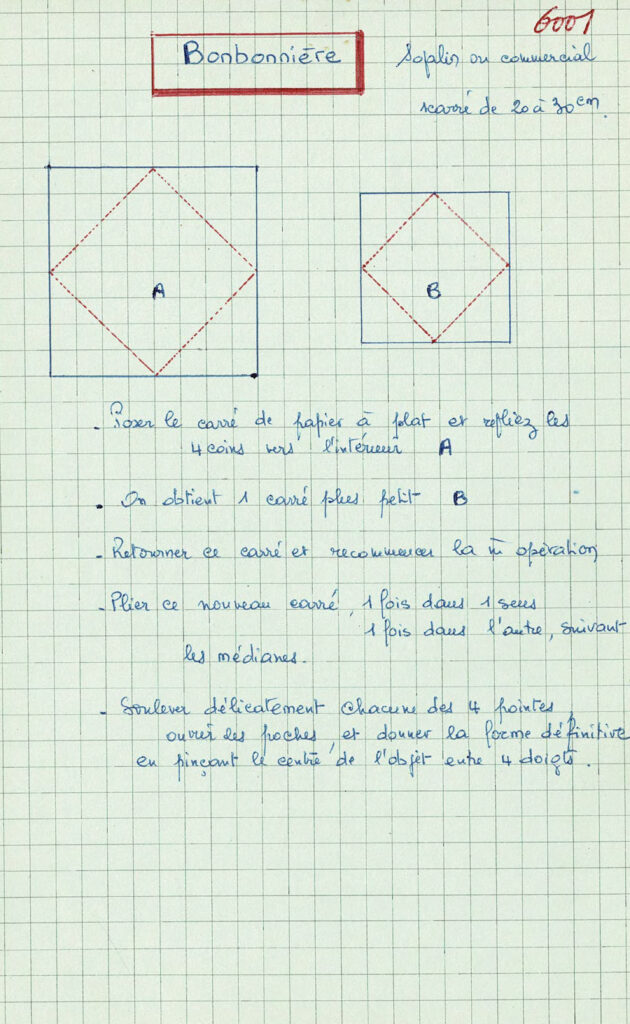 6001
Bonbonnière
Soplin ou commercial
carré de 20 à 30 cm.
A
B
- Poser le carré de papier à plat et repliez les
4 coins vers l'intérieur A
- On obtient 1 carré plus petit B
- Retourner ce carré et recommencer la m̄ opération
- Plier ce nouveau carré, 1 fois dans 1 sens
1 fois dans l'autre, suivant
les médianes.
- Soulever délicatement chacune des 4 pointes,
ouvrir les poches, et donner la forme définitive
en pinçant le centre de l'objet entre 4 doigts.